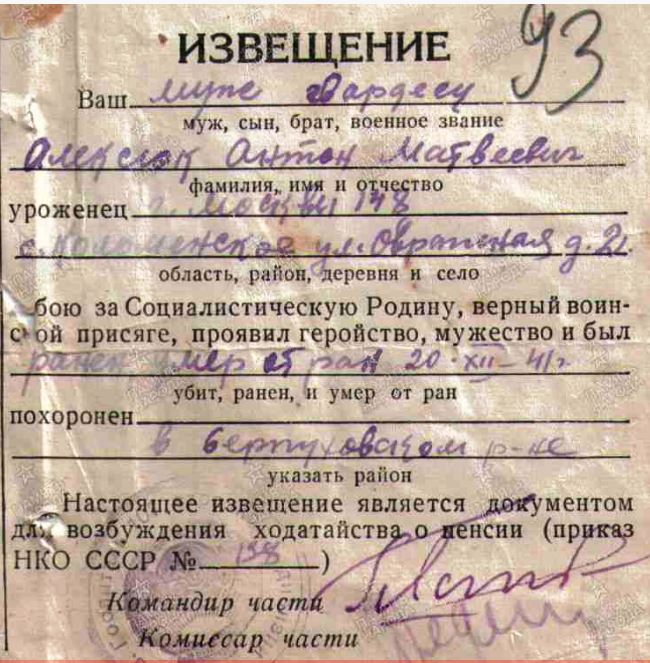 ИЗВЕЩЕНИЕ
93
Ваш муж
муж, сын, брат, военное звание
Антон Матвеевич
фамилия, имя и отчество
уроженец г. Москвы 148
с. Коломенское ул. Овражная д. 21
область, район, деревня и село
бою за Социалистическую Родину, верный воин-
ской присяге, проявил геройство, мужество и был
ранен умер от ран 20-XII-41г
убит, ранен, и умер от ран
похоронен
в Серпуховском р-не
указать район
Настоящее извещение является документом
для возбуждения ходатайства о пенсии (приказ
НКО СССР № 138)
Командир части
Комиссар части